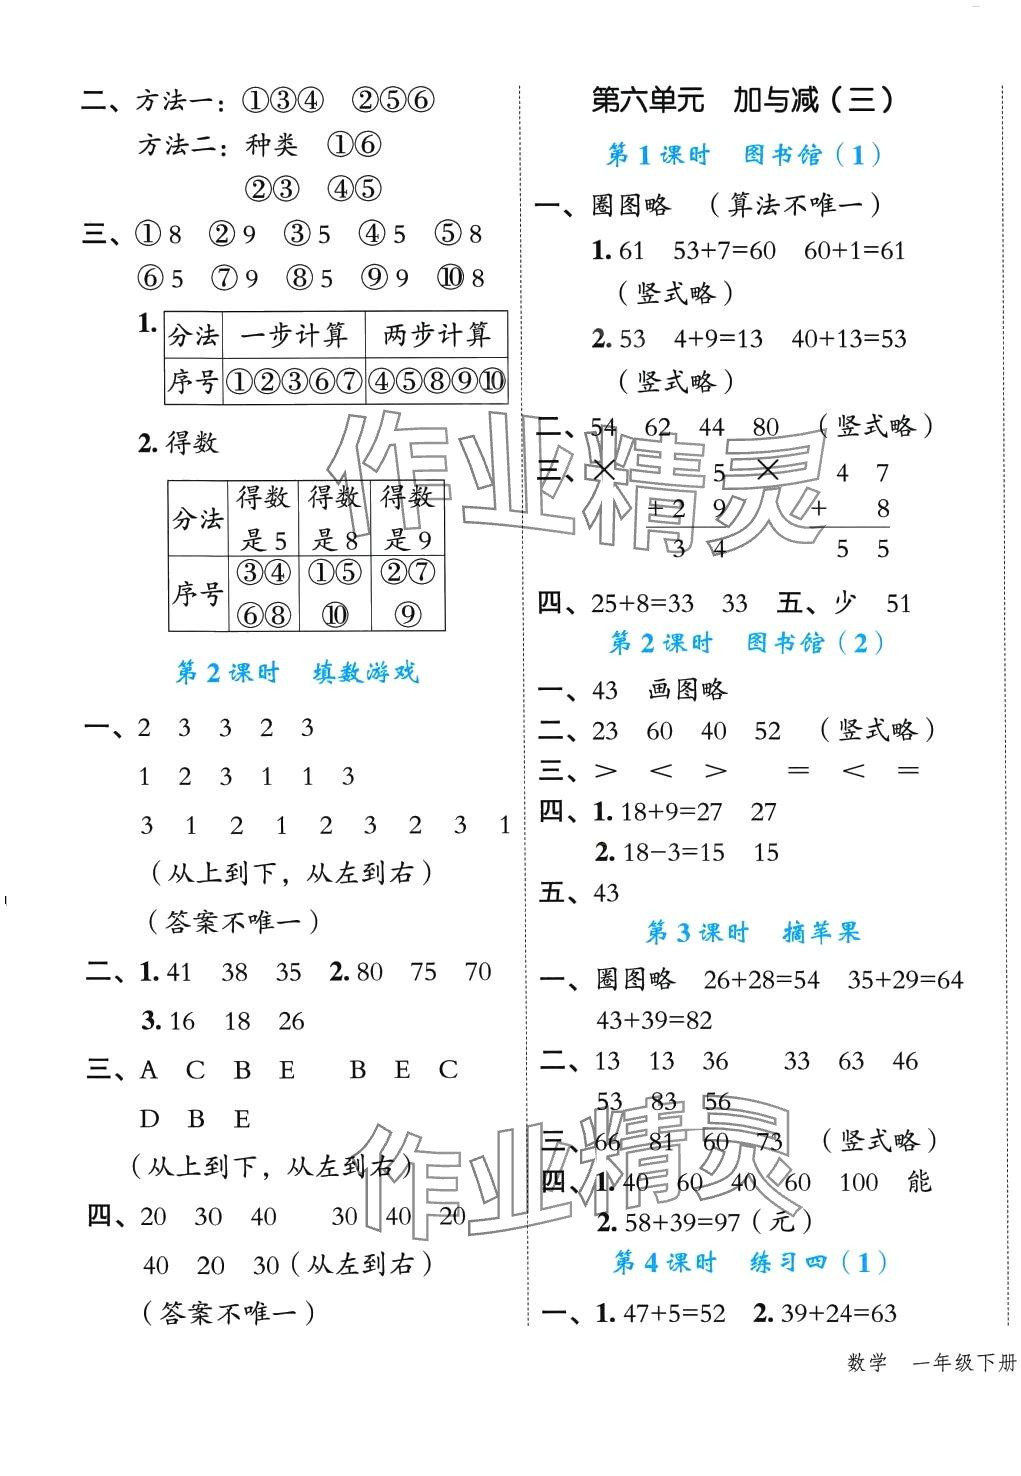 二、方法一：①③④ ②⑤⑥
方法二：种类 ①⑥
②③ ④⑤
三、①8 ②9 ③5 ④5 ⑤8
⑥5 ⑦9 ⑧5 ⑨9 ⑩8
1.
分法 一步计算 两步计算
序号 ①②③⑥⑦ ④⑤⑧⑨⑩
2. 得数
分法 得数是5 得数是8 得数是9
序号 ③④⑥⑧ ①⑤⑩ ②⑦⑨
第2课时 填数游戏
一、2 3 3 2 3
1 2 3 1 1 3
3 1 2 1 2 3 2 3 1
（从上到下，从左到右）
（答案不唯一）
二、1. 41 38 35 2. 80 75 70
3. 16 18 26
三、A C B E B E C
D B E
（从上到下，从左到右）
四、20 30 40 30 40 20
40 20 30（从左到右）
（答案不唯一）
第六单元 加与减（三）
第1课时 图书馆（1）
一、圈图略 （算法不唯一）
1. 61 53+7=60 60+1=61
（竖式略）
2. 53 4+9=13 40+13=53
（竖式略）
二、54 62 44 80 （竖式略）
三、× 5 × 4 7
+ 2 9 + 8
3 4 5 5
四、25+8=33 33 五、少 51
第2课时 图书馆（2）
一、43 画图略
二、23 60 40 52 （竖式略）
三、> < > = < =
四、1. 18+9=27 27
2. 18−3=15 15
五、43
第3课时 摘苹果
一、圈图略 26+28=54 35+29=64
43+39=82
二、13 13 36 33 63 46
53 83 56
三、66 81 60 73 （竖式略）
四、1. 40 60 40 60 100 能
2. 58+39=97（元）
第4课时 练习四（1）
一、1. 47+5=52 2. 39+24=63
数学 一年级下册
作业精灵
作业精灵